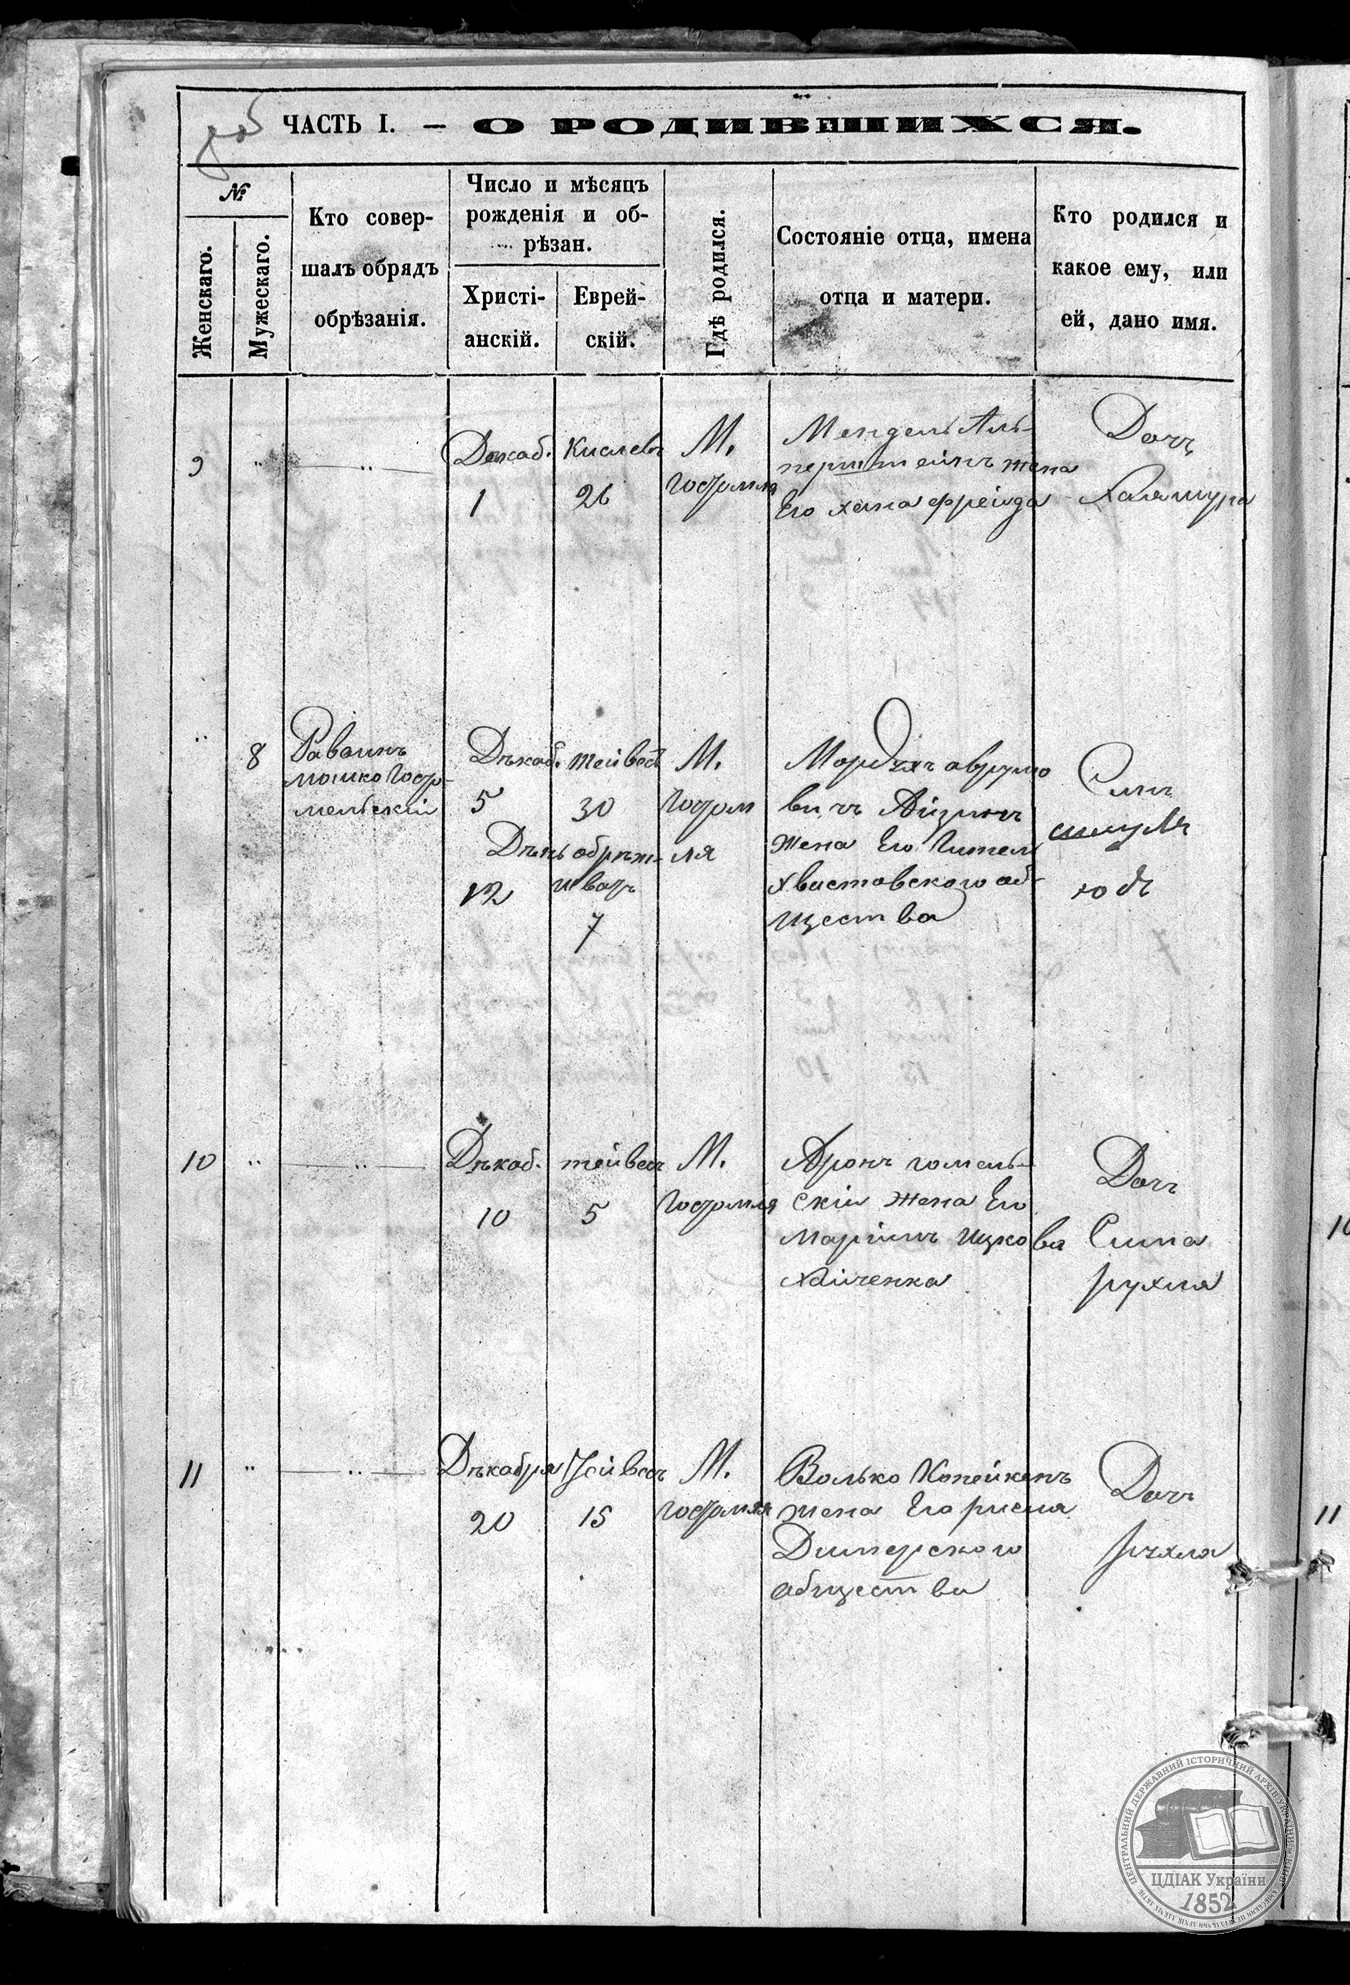 ЧАСТЬ I. — О РОДИВШИХСЯ.
№
Женскаго.
Мужескаго.
Кто совер-
шалъ обрядъ
обрѣзанія.
Число и мѣсяцъ
рожденія и об-
рѣзан.
Христі-
анскій.
Еврей-
скій.
Гдѣ родился.
Состояніе отца, имена
отца и матери.
Кто родился и
какое ему, или
ей, дано имя.
9
Декаб.
1
Кислевъ
26
М.
Гостомля
Мендель Аль-
перштейнъ жена
Его хана фрейда
Дочь
Хаяшура
8
Раввинъ
мошко Гостр-
мельскій
Дѣкаб.
5
тейвесъ
30
День обрѣж-
12
7
М.
Гостом
ля
Мордухъ аврумо
вичъ Айзинъ
жена Его Гител
хвастовского об-
щества
Синъ
шмуль
юдъ
10
Дѣкаб.
10
тейвес
5
М.
Гостомля
Аронъ гомель-
скій жена Его
Маріимъ ицкова
Хайченка
Дочь
Сима
рухля
11
Дѣкабря
20
Тейвесъ
15
М.
гостомля
Волько Копейкенъ
жена Его рисля
Димерского
общества
Дочь
рухля
ЦЕНТРАЛЬНИЙ ДЕРЖАВНИЙ ІСТОРИЧНИЙ АРХІВ УКРАЇНИ
ЦДІАК України
1852
10
11